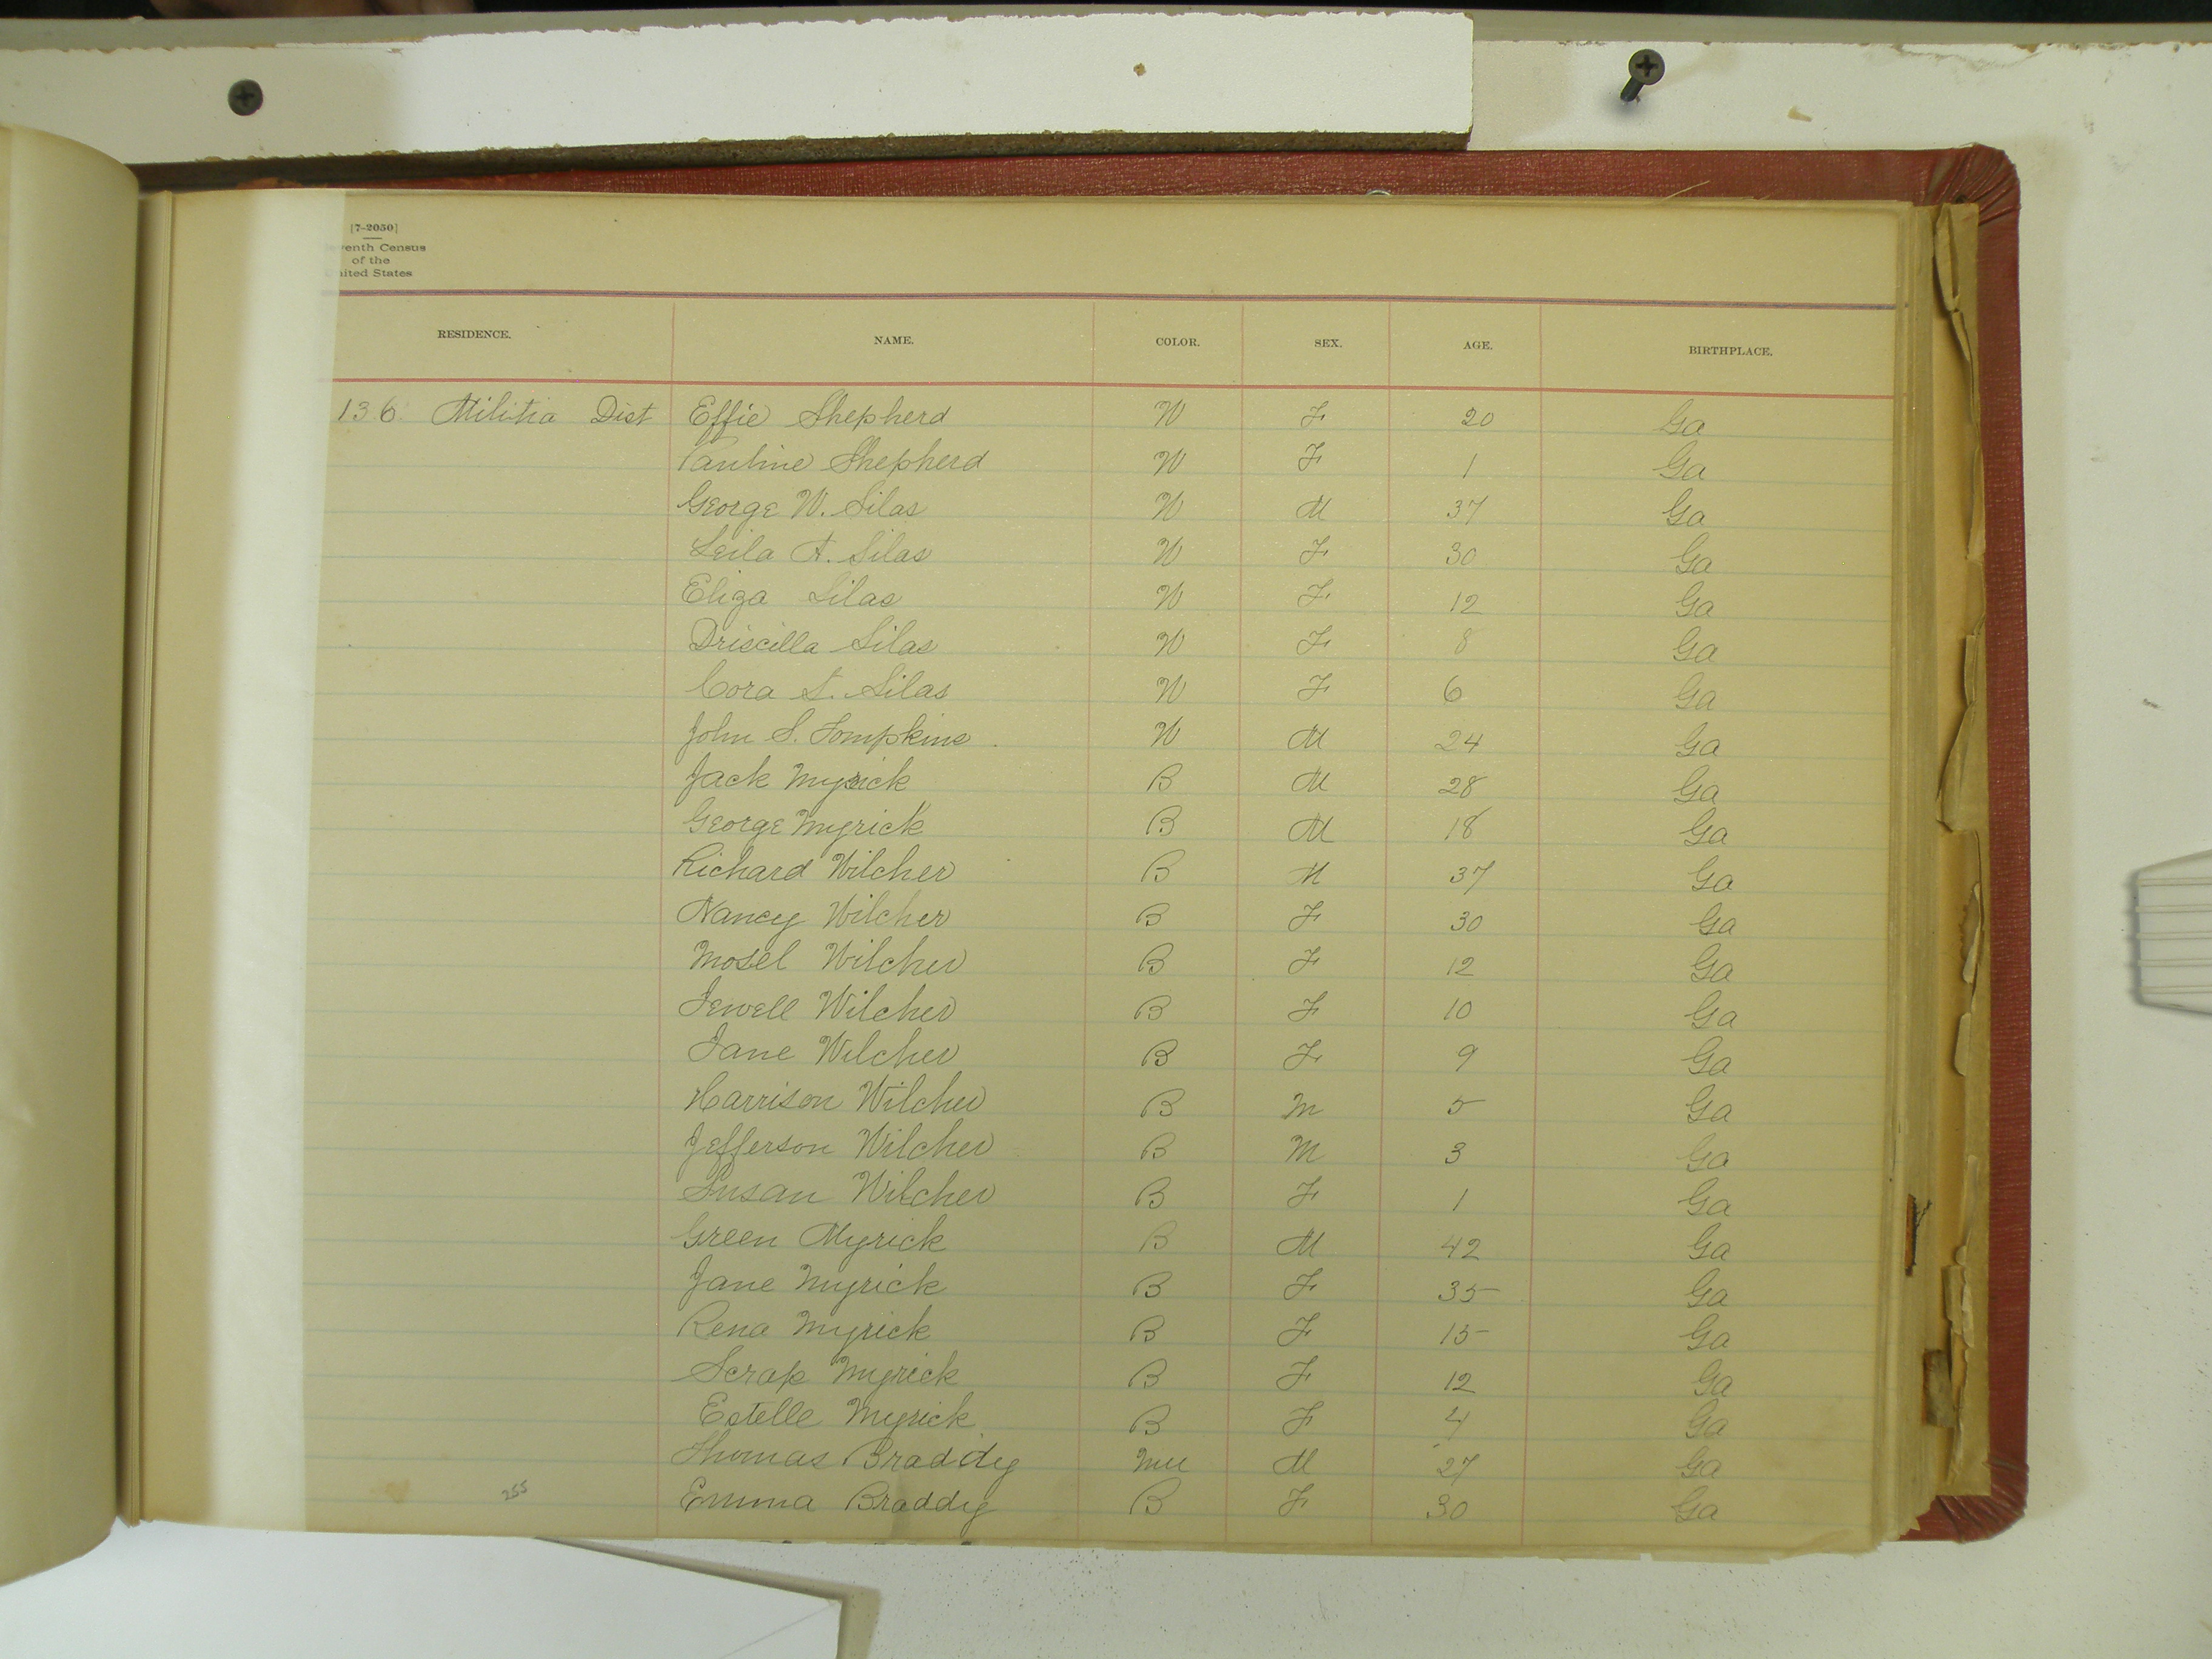 [7-2050]
venth Census
of the
nited States
RESIDENCE. NAME. COLOR. SEX. AGE. BIRTHPLACE.
136 Militia Dist Effie Shepherd W F 20 Ga
Pauline Shepherd W F 1 Ga
George W. Silas W M 37 Ga
Leila A. Silas W F 30 Ga
Eliza Silas W F 12 Ga
Driscilla Silas W F 8 Ga
Cora L. Silas W F 6 Ga
John S. Tompkins W M 24 Ga
Jack Myrick B M 28 Ga
George Myrick B M 18 Ga
Richard Wilcher B M 37 Ga
Nancy Wilcher B F 30 Ga
Mosel Wilcher B F 12 Ga
Jewell Wilcher B F 10 Ga
Jane Wilcher B F 9 Ga
Harrison Wilcher B M 5 Ga
Jefferson Wilcher B M 3 Ga
Susan Wilcher B F 1 Ga
Green Myrick B M 42 Ga
Jane Myrick B F 35 Ga
Rena Myrick B F 15 Ga
Scrap Myrick B F 12 Ga
Estelle Myrick B F 4 Ga
Thomas Braddy Mu M 27 Ga
Emma Braddy B F 30 Ga
255